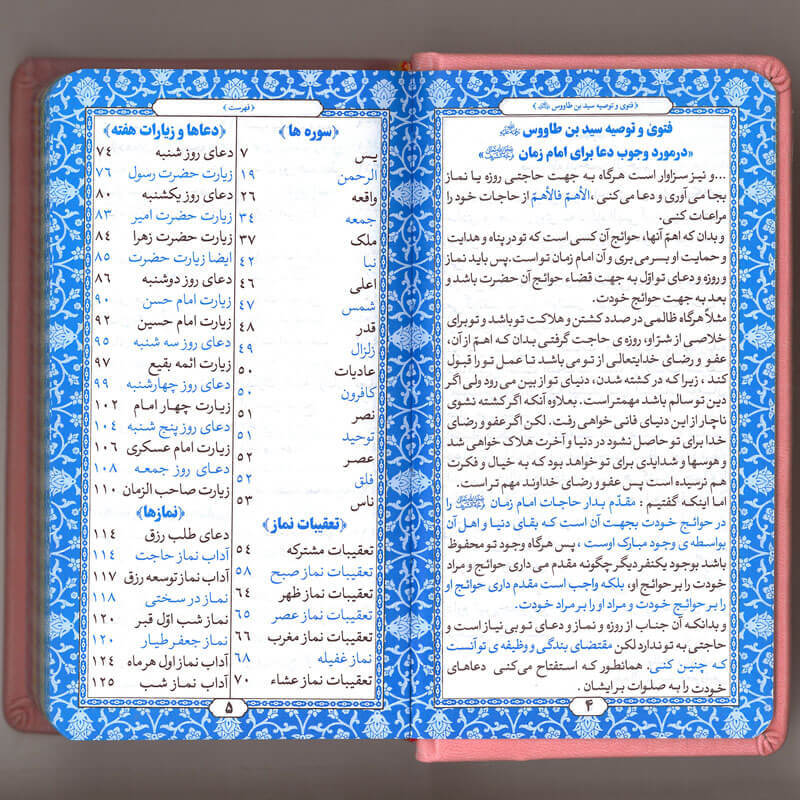 ﴿ فتوی و توصیه سید بن طاووس ﴾
فتوی و توصیه سید بن طاووس
«درمورد وجوب دعا برای امام زمان»
...و نیز سزاوار است هرگاه به جهت حاجتی روزه یا نماز
بجا می‌آوری و دعا می‌کنی، الأهمّ فالأهمّ از حاجات خود را
مراعات کنی.
و بدان که اهمّ آنها، حوائج آن کسی است که تو در پناه و هدایت
و حمایت او بسر می‌بری و آن امام زمان تو است، پس باید نماز
و روزه و دعای تو اوّل به جهت قضاء حوائج آن حضرت باشد و
بعد به جهت حوائج خودت.
مثلاً هرگاه ظالمی در صدد کشتن و هلاکت تو باشد و تو برای
خلاصی از شرّ او، روزه ی حاجت گرفتی بدان که اهمّ از آن،
عفو و رضای خدایتعالی از تو می باشد تا عمل تو را قبول
کند، زیرا که در کشته شدن، دنیای تو از بین می رود ولی اگر
دین تو سالم باشد مهمتر است. بعلاوه آنکه اگر کشته نشوی
ناچار از این دنیای فانی خواهی رفت. لکن اگر عفو و رضای
خدا برای تو حاصل نشود در دنیا و آخرت هلاک خواهی شد
و هوسها و شدایدی برای تو خواهد بود که به خیال و فکرت
هم نرسیده است پس عفو و رضای خداوند مهم تر است.
اما اینکه گفتیم : مقدّم بدار حاجات امام زمان را
در حوائج خودت بجهت آن است که بقای دنیا و اهل آن
بواسطه ی وجود مبارک اوست ، پس هرگاه وجود تو محفوظ
باشد بوجود یکنفر دیگر چگونه مقدم می داری حوائج و مراد
خودت را بر حوائج او، بلکه واجب است مقدم داری حوائج او
را بر حوائج خودت و مراد او را بر مراد خودت.
و بدانکه آن جناب از روزه و نماز و دعای تو بی نیاز است و
حاجتی به تو ندارد لکن مقتضای بندگی و وظیفه ی تو آنست
که چنین کنی. همانطور که استفتاح می کنی دعاهای
خودت را به صلوات برایشان .
۴
﴿ فهرست ﴾
﴿سوره ها﴾
یس ۷
الرحمن ۱۹
واقعه ۲۶
جمعه ۳۴
ملک ۳۷
نبا ۴۲
اعلی ۴۶
شمس ۴۷
قدر ۴۸
زلزال ۴۹
عادیات ۵۰
کافرون ۵۰
نصر ۵۱
توحید ۵۱
عصر ۵۲
فلق ۵۲
ناس ۵۳
﴿تعقیبات نماز﴾
تعقیبات مشترکه ۵۴
تعقیبات نماز صبح ۵۸
تعقیبات نماز ظهر ۶۴
تعقیبات نماز عصر ۶۵
تعقیبات نماز مغرب ۶۶
نماز غفیله ۶۸
تعقیبات نماز عشاء ۷۰
﴿دعاها و زیارات هفته﴾
دعای روز شنبه ۷۴
زیارت حضرت رسول ۷۶
دعای روز یکشنبه ۸۰
زیارت حضرت امیر ۸۳
زیارت حضرت زهرا ۸۴
ایضا زیارت حضرت ۸۵
دعای روز دوشنبه ۸۶
زیارت امام حسن ۹۰
زیارت امام حسین ۹۲
دعای روز سه شنبه ۹۵
زیارت ائمه بقیع ۹۷
دعای روز چهارشنبه ۹۹
زیارت چهار امام ۱۰۲
دعای روز پنج شنبه ۱۰۴
زیارت امام عسکری ۱۰۶
دعای روز جمعه ۱۰۸
زیارت صاحب الزمان ۱۱۰
﴿نمازها﴾
دعای طلب رزق ۱۱۴
آداب نماز حاجت ۱۱۴
آداب نماز توسعه رزق ۱۱۷
نماز در سختی ۱۱۸
نماز شب اوّل قبر ۱۲۰
نماز جعفر طیار ۱۲۰
آداب نماز اول هر ماه ۱۲۴
آداب نماز شب ۱۲۵
۵